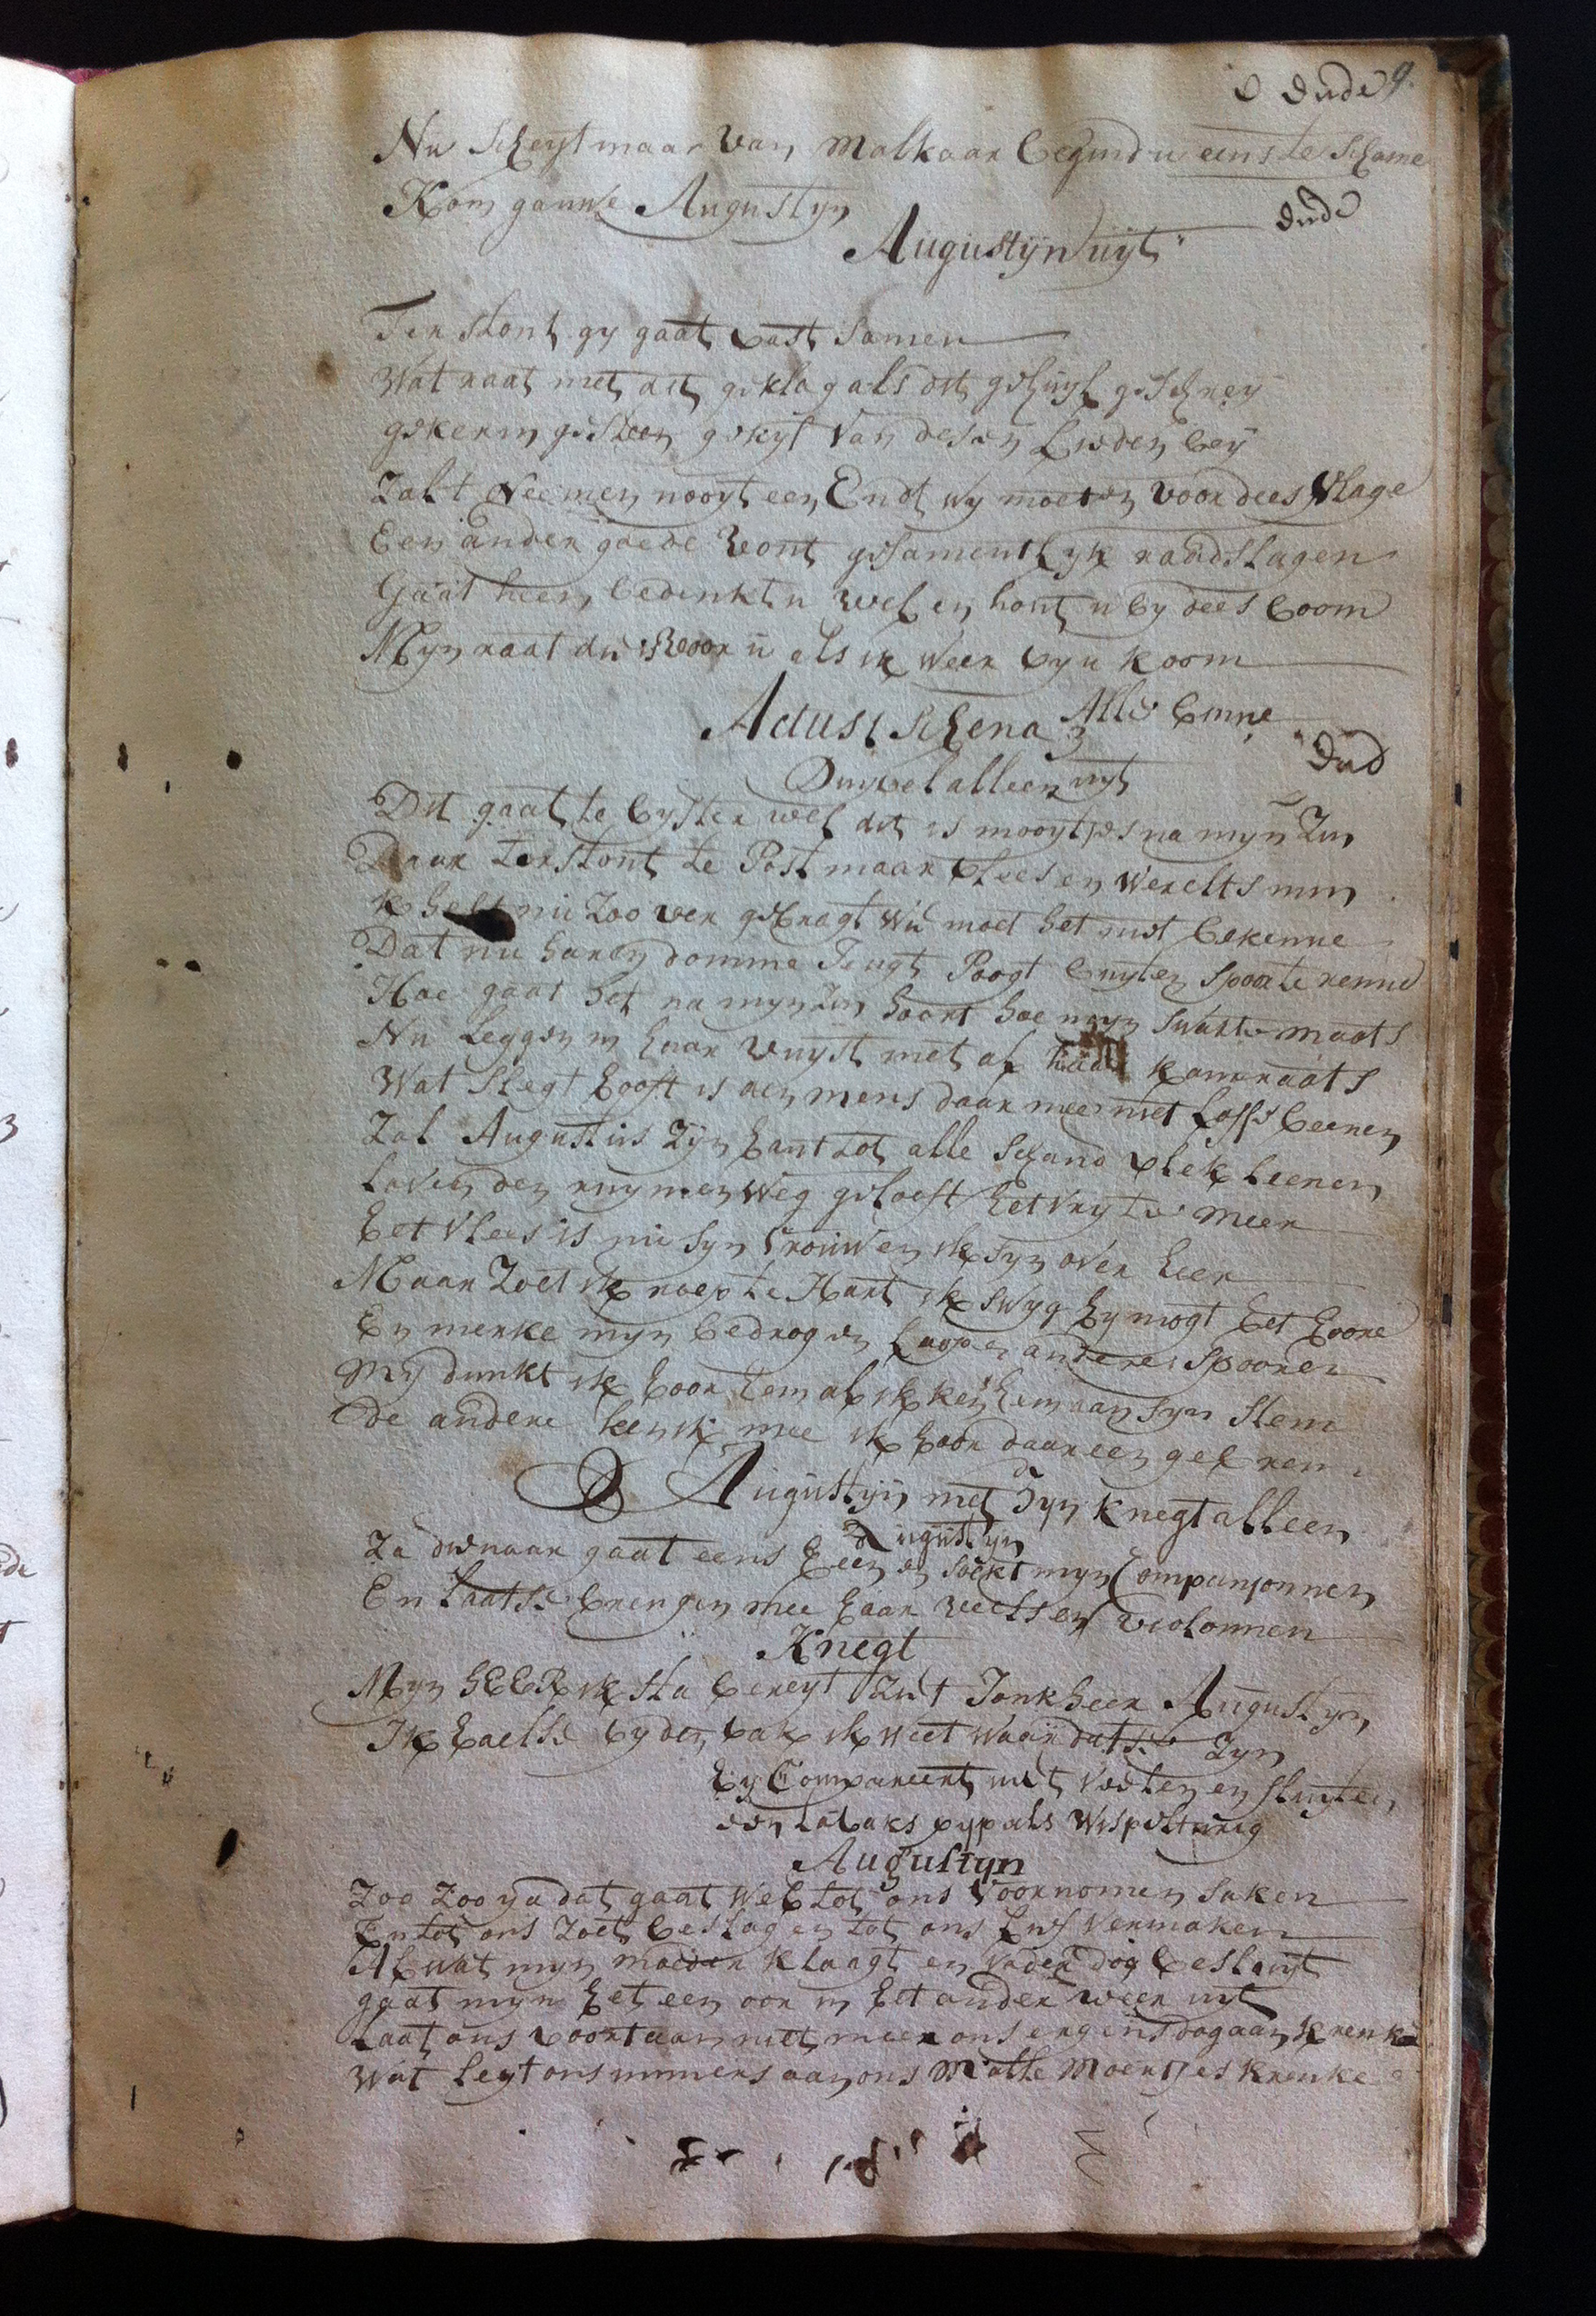 dude 9
Nu scheyt maar van malkaar begind u eens te schame
Kom gauwe Augustyn
dude
Augustyn uyt
Ter stont gy gaat vast samen
Wat raat met dit geklag als dit gehuyl geschrey
gekerm gesteen gekyf van desen lieden bey
Zal t Neemen nooyt een Endt wy moeten voor dees vlage
Een ander goede vont gesamentlyk raadslagen
Gaat heen bedenkt u wel en hout u by dees boom
Myn raat die is voor u als ik weer by u koom
Alle binne
Actus 1 schena 3
dud
Duyvel alleen uyt
Dit gaat te byster wel dit is mooytjes na myn Zin
Daar terstont te Post maar vlees en werelts min
k heb nu Zoo ver gebragt wie moet het niet bekenne
Dat nu haren domme Jeugt Poogt buyten spoor te renne
Hoe gaat het na myn Zin hoort hoe myn swarte maats
Nu leggen in haar vuyst met al haar kameraats
Wat slegt hooft is den mens daar mee met losse beenen
Zal Augustus Zyn hant tot alle schand vlek leenen
laven den ruymen weg gelooft het vry te meer
het vlees is nu syn vrouw en ik syn over heer
Maar Zoet ik roep te Hart ik swyg hy mogt het hoore
En merke myn bedrog en loopen andere spooren
My dunkt ik hoor hem al ik ken hem aan syn stem
de andere ken ik mee ik hoor daar een gelrem
Augustyn met Zyn knegt alleen
Augustyn
Za dienaar gaat eens heen en soekt myn Companjonnen
En laatse brengen mee haar veelsen violonnen
Knegt
Myn HEER ik sta bereyt Ziet Jonkheer Augustyn
Ik haelse by den bak ik weet waar datse Zyn
hy Compareert met veelen en fluyten
een tabaks pyp als wispelturig
Augustyn
Zoo Zoo ja dat gaat wel tot ons voornomen saken
En tot ons Zoet beslag en tot ons lus vermaken
Al wat myn moeder klaagt en vader dog besluyt
gaat myn het een oor in het ander weer uyt
laat ons voortaan niet meer ons ergens dog aan krenke
Wat leyt ons immers aan ons malle moertjes krenke